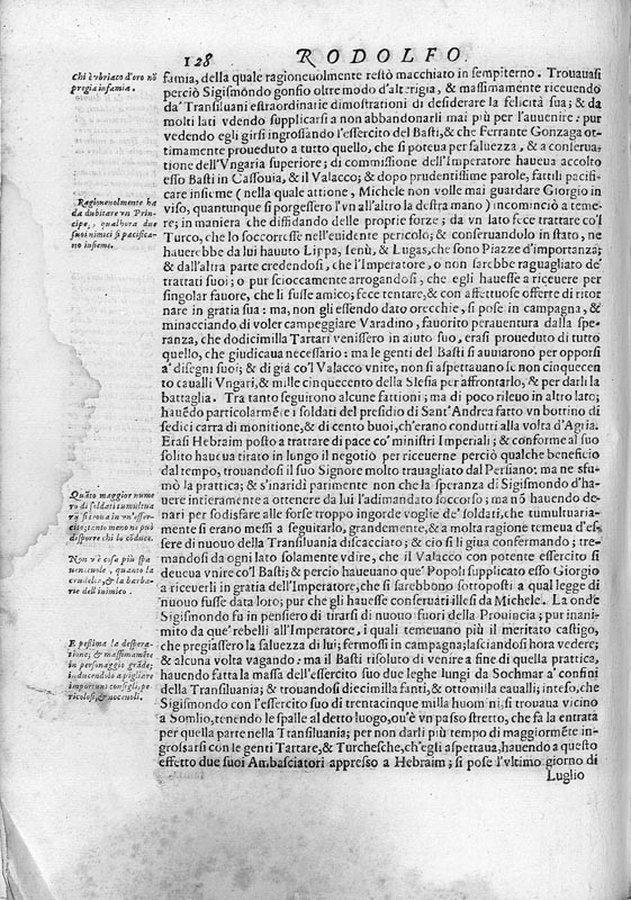 128 RODOLFO.
Chi è vbriaco d'oro nō
pregia infamia.
famia, della quale ragioneuolmente restò macchiato in sempiterno. Trouauasi
perciò Sigismōndo gonfio oltre modo d'alterigia, & massimamente riceuendo
da' Transiluani estraordinarie dimostrationi di desiderare la felicità sua; & da
molti lati vdendo supplicarsi a non abbandonarli mai più per l'auuenire: pur
vedendo egli girsi ingrossando l'essercito del Basti, & che Ferrante Gonzaga ot-
timamente proueduto a tutto quello, che si poteua per saluezza, & a conserua-
tione dell'Vngaria superiore; di commissione dell'Imperatore haueua accolto
esso Basti in Cassouia, & il Valacco; & dopo prudentissime parole, fattili pacifi-
care insieme (nella quale attione, Michele non volle mai guardare Giorgio in
viso, quantunque si porgessero l'vn all'altro la destra mano) incominciò a teme-
re; in maniera che diffidando delle proprie forze; da vn lato fece trattare co'l
Turco, che lo soccorresse nell'euidente pericolo; & conseruandolo in stato, ne
hauerebbe da lui hauuto Lippa, Ienù, & Lugas, che sono Piazze d'importanza;
& dall'altra parte credendosi, che l'Imperatore, o non sarebbe raguagliato de'
trattati suoi; o pur scioccamente arrogandosi, che egli hauesse a riceuere per
singolar fauore, che li fusse amico; fece tentare, & con affettuose offerte di ritor
nare in gratia sua: ma, non gli essendo dato orecchie, si pose in campagna, &
minacciando di voler campeggiare Varadino, fauorito perauentura dalla spe-
ranza, che dodicimilla Tartari venissero in aiuto suo, erasi proueduto di tutto
quello, che giudicaua necessario: ma le genti del Basti si auuiarono per opporsi
a' disegni suoi; & di già co'l Valacco vnite, non si aspettauano se non cinquecen
to caualli Vngari, & mille cinquecento della Slesia per affrontarlo, & per darli la
battaglia. Tra tanto seguirono alcune fattioni; ma di poco rileuo in altro lato;
hauēdo particolarmēte i soldati del presidio di Sant'Andrea fatto vn bottino di
sedici carra di monitione, & di cento buoi, ch'erano condutti alla volta d'Agria.
Erasi Hebraim posto a trattare di pace co' ministri Imperiali; & conforme al suo
solito haueua tirato in lungo il negotio per riceuerne perciò qualche beneficio
dal tempo, trouandosi il suo Signore molto trauagliato dal Persiano: ma ne sfu-
mò la prattica; & s'inaridì parimente non che la speranza di Sigismondo d'ha-
uere intieramente a ottenere da lui l'adimandato soccorso; ma nō hauendo de-
nari per sodisfare alle forse troppo ingorde voglie de' soldati, che tumultuaria-
mente si erano messi a seguitarlo, grandemente, & a molta ragione temeua d'es
sere di nuouo della Transiluania discacciato; & cio si li giua confermando; tre-
mandosi da ogni lato solamente vdire, che il Valacco con potente essercito si
deueua vnire co'l Basti; & percio haueuano que' Popoli supplicato esso Giorgio
a riceuerli in gratia dell'Imperatore, che si sarebbono sottoposti a qual legge di
nuouo fusse data loro; pur che gli hauesse conseruati illesi da Michele. La onde
Sigismondo fu in pensiero di tirarsi di nuouo fuori della Prouincia; pur inani-
mito da que' rebelli all'Imperatore, i quali temeuano più il meritato castigo,
che pregiassero la saluezza di lui; fermossi in campagna; lasciandosi hora vedere;
& alcuna volta vagando: ma il Basti risoluto di venire a fine di quella prattica,
hauendo fatta la massa dell'essercito suo due leghe lungi da Sochmar a' confini
della Transiluania; & trouandosi diecimilla fanti, & ottomilla caualli; inteso, che
Sigismondo con l'essercito suo di trentacinque milla huomini, si trouaua vicino
a Somlio, tenendo le spalle al detto luogo, ou'è vn passo stretto, che fa la entrata
per quella parte nella Transiluania; per non darli più tempo di maggiormēte in-
grossarsi con le genti Tartare, & Turchesche, ch'egli aspettaua, hauendo a questo
effetto due suoi Ambasciatori appresso a Hebraim; si pose l'vltimo giorno di
Luglio
Ragioneuolmente ha
da dubitare vn Prin-
cipe, qualhora due
suoi nimici si pacifica-
no insieme.
Quāto maggior nume
ro di soldati tumultua
rij si troua in vn'esser-
cito; tanto meno ne può
disporre chi lo cōduce.
Non v'è cosa più spa
uenteuole, quanto la
crudeltà, & la barba-
rie dell'inimico.
E pessima la despera-
tione; & massimamēte
in personaggio grāde;
inducendolo a pigliare
importuni consigli, pe-
ricolosi, & nociuoli.